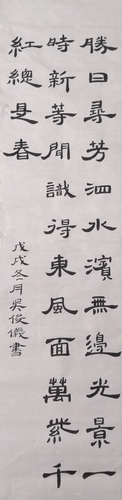 勝日尋芳泗水濱無邊光景一
時新等閒識得東風面萬紫千
紅總是春
戊戌冬月吳俊儀書